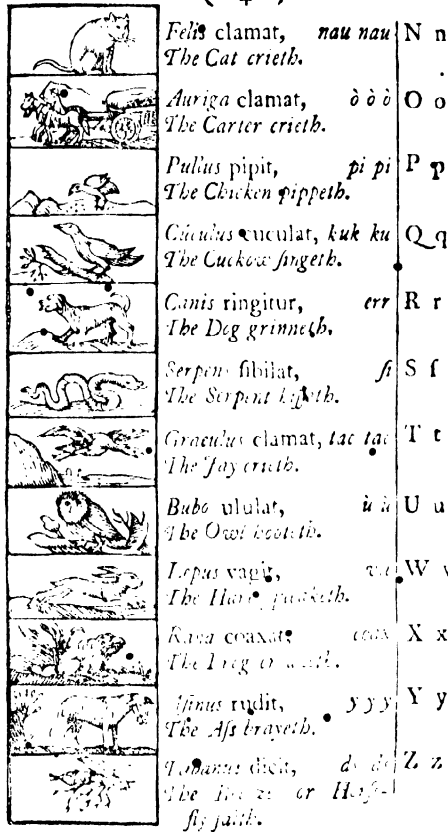 Felis clamat, nau nau N n
The Cat crieth.
Auriga clamat, ò ò ò O o
The Carter crieth.
Pullus pipit, pi pi P p
The Chicken pippeth.
Cuculus cuculat, kuk ku Q q
The Cuckow ſingeth.
Canis ringitur, err R r
The Dog grinneth.
Serpens ſibilat, ſi S ſ
The Serpent hiſſeth.
Graculus clamat, tac tac T t
The Jay crieth.
Bubo ululat, ù ù U u
The Owl hooteth.
Lepus vagit, va W w
The Hare ſqueaketh.
Rana coaxat, coax X x
The Frog croaketh.
Aſinus rudit, y y y Y y
The Aſs brayeth.
Tabanus dicit, ds ds Z z
The or Horſe-
fly ſaith.